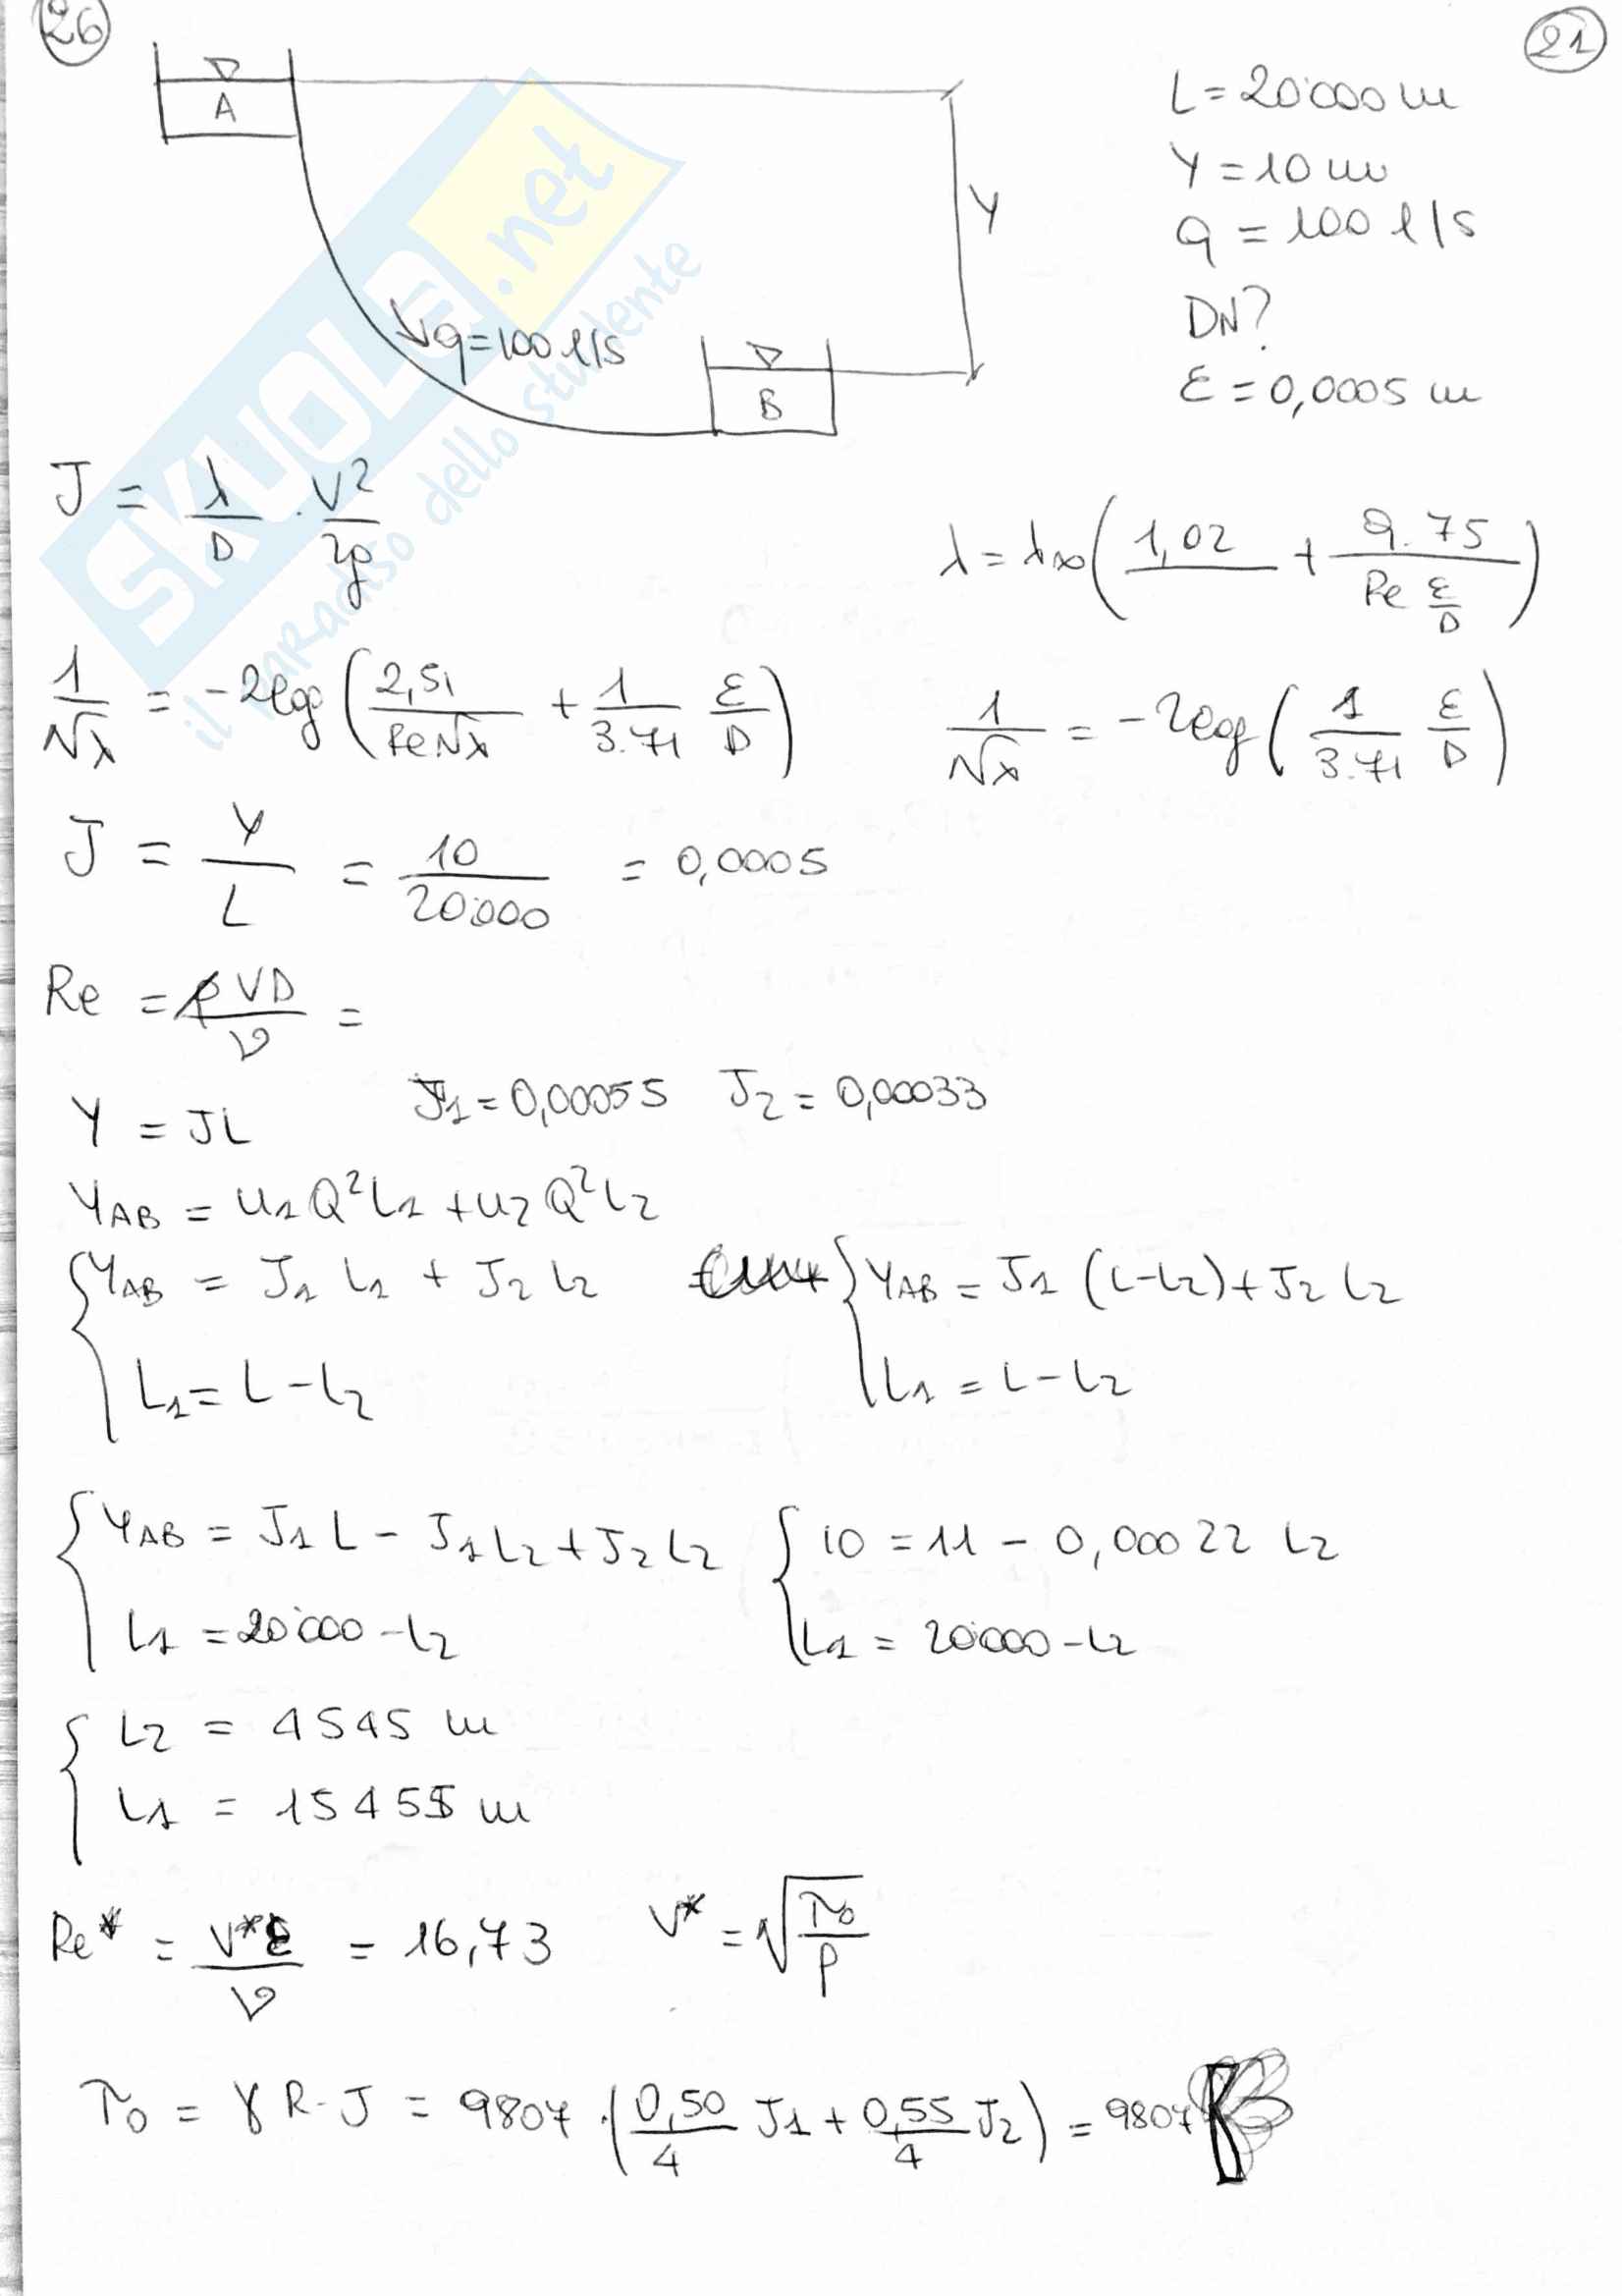 26
21
A
Y
q=100 l/s
B
L = 20'000 m
Y = 10 m
q = 100 l/s
DN?
ε = 0,0005 m
SKUOLA.net
il paradiso dello studente
J = λ/D · V²/2g
λ = λ∞(1,02 + 9.75/(Re ε/D))
1/√λ = -2log(2,51/(Re√λ) + 1/3.71 ε/D)
1/√λ = -2log(1/3.71 ε/D)
J = Y/L = 10/20'000 = 0,0005
Re = VD/ν =
Y = JL J1 = 0,00055 J2 = 0,00033
YAB = u1Q²L1 + u2Q²L2
{YAB = J1 L1 + J2 L2
L1 = L - L2
{YAB = J1 (L-L2) + J2 L2
L1 = L - L2
{YAB = J1 L - J1L2 + J2L2
L1 = 20'000 - L2
{10 = 11 - 0,00022 L2
L1 = 20'000 - L2
{L2 = 4545 m
L1 = 15455 m
Re* = V*ε/ν = 16,73 V* = √(τ0/ρ)
τ0 = γ R · J = 9807 · (0,50/4 J1 + 0,55/4 J2) = 9807